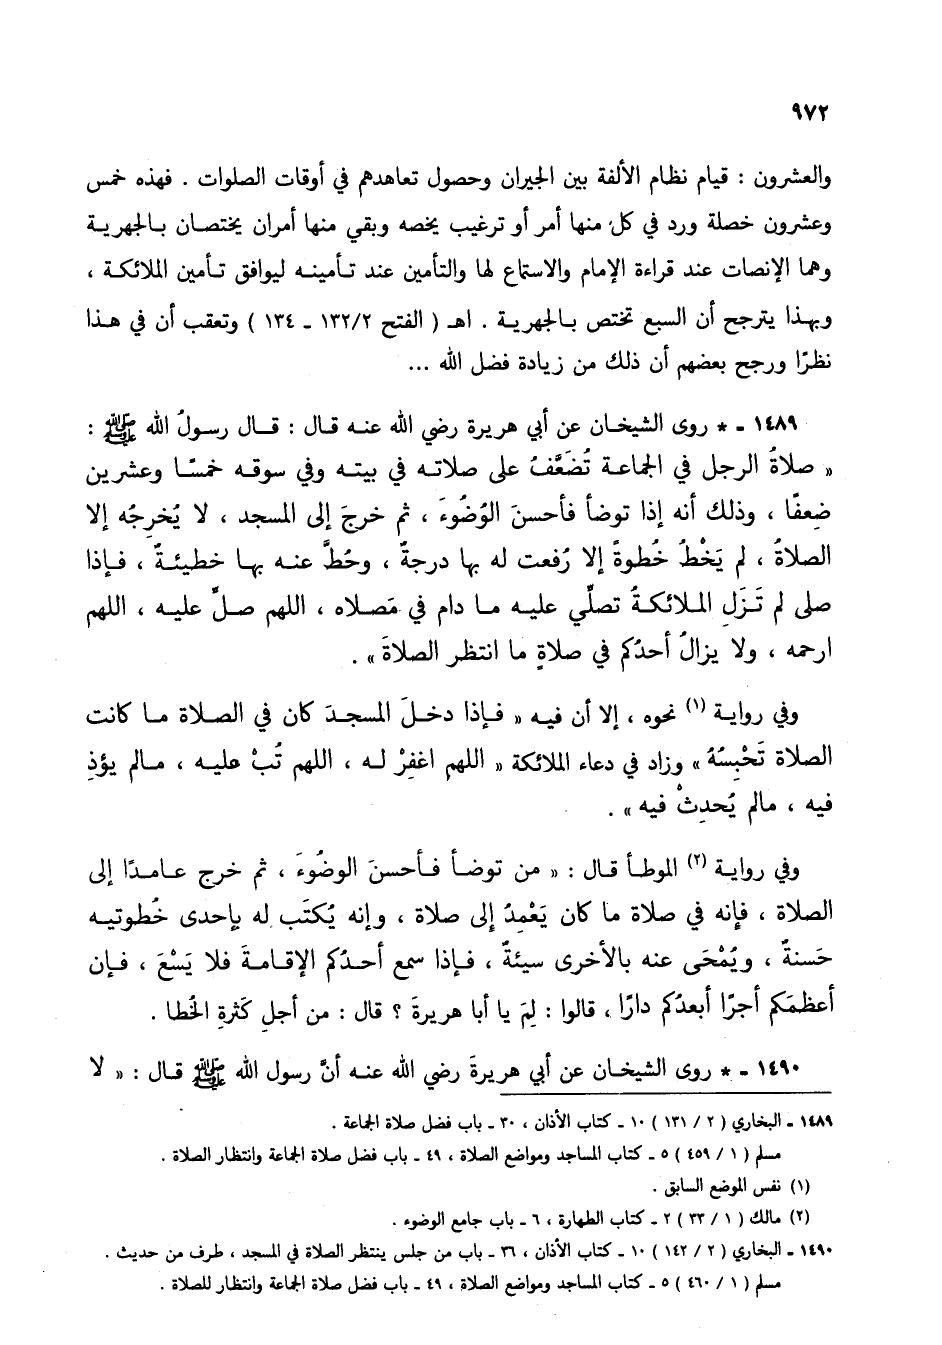 ٩٧٢
والعشرون : قيام نظام الألفة بين الجيران وحصول تعاهدهم في أوقات الصلوات . فهذه خمس
وعشرون خصلة ورد في كل منها أمر أو ترغيب يخصه وبقي منها أمران يختصان بالجهرية
وهما الإنصات عند قراءة الإمام والاستماع لها والتأمين عند تأمينه ليوافق تأمين الملائكة ،
وبهذا يترجح أن السبع تختص بالجهرية . اهـ ( الفتح ١٣٢/٢ ـ ١٣٤ ) وتعقب أن في هذا
نظرًا ورجح بعضهم أن ذلك من زيادة فضل الله ...
١٤٨٩ ـ * روى الشيخان عن أبي هريرة رضي الله عنه قال : قال رسولُ الله ﷺ :
« صلاةُ الرجل في الجماعة تُضَعَّفُ على صلاته في بيته وفي سوقه خمسًا وعشرين
ضِعفًا ، وذلك أنه إذا توضأ فأحسنَ الوُضُوءَ ، ثم خرجَ إلى المسجد ، لا يُخرِجُه إلا
الصلاةُ ، لم يَخْطُ خُطوةً إلا رُفعت له بها درجةٌ ، وحُطَّ عنه بها خطيئةٌ ، فإذا
صلى لم تَزَلِ الملائكةُ تصلِّي عليه ما دام في مَصلاه ، اللهم صلِّ عليه ، اللهم
ارحمه ، ولا يزالُ أحدُكم في صلاةٍ ما انتظر الصلاةَ » .
وفي رواية (١) نحوه ، إلا أن فيه « فإذا دخلَ المسجدَ كان في الصلاة ما كانت
الصلاة تَحْبِسُهُ » وزاد في دعاء الملائكة « اللهم اغفِرْ له ، اللهم تُبْ عليه ، مالم يؤذِ
فيه ، مالم يُحدِثْ فيه » .
وفي رواية (٢) الموطأ قال : « من توضأ فأحسنَ الوضُوءَ ، ثم خرج عامدًا إلى
الصلاة ، فإنه في صلاة ما كان يَعْمِدُ إلى صلاة ، وإنه يُكتَب له بإحدى خُطوتيه
حَسنةٌ ، ويُمْحَى عنه بالأخرى سيئةٌ ، فإذا سمع أحدُكم الإقامةَ فلا يَسْعَ ، فإن
أعظمَكم أجرًا أبعدُكم دارًا ، قالوا : لِمَ يا أبا هريرةَ ؟ قال : من أجلِ كَثرةِ الخُطا .
١٤٩٠ ـ * روى الشيخان عن أبي هريرةَ رضي الله عنه أنَّ رسول الله ﷺ قال : « لا
١٤٨٩ ـ البخاري ( ٢ / ١٣١ ) ١٠ ـ كتاب الأذان ، ٣٠ ـ باب فضل صلاة الجماعة .
مسلم ( ١ / ٤٥٩ ) ٥ ـ كتاب المساجد ومواضع الصلاة ، ٤٩ ـ باب فضل صلاة الجماعة وانتظار الصلاة .
(١) نفس الموضع السابق .
(٢) مالك ( ١ / ٣٣ ) ٢ ـ كتاب الطهارة ، ٦ ـ باب جامع الوضوء .
١٤٩٠ ـ البخاري ( ٢ / ١٤٢ ) ١٠ ـ كتاب الأذان ، ٣٦ ـ باب من جلس ينتظر الصلاة في المسجد ، طرف من حديث .
مسلم ( ١ / ٤٦٠ ) ٥ ـ كتاب المساجد ومواضع الصلاة ، ٤٩ ـ باب فضل صلاة الجماعة وانتظار للصلاة .